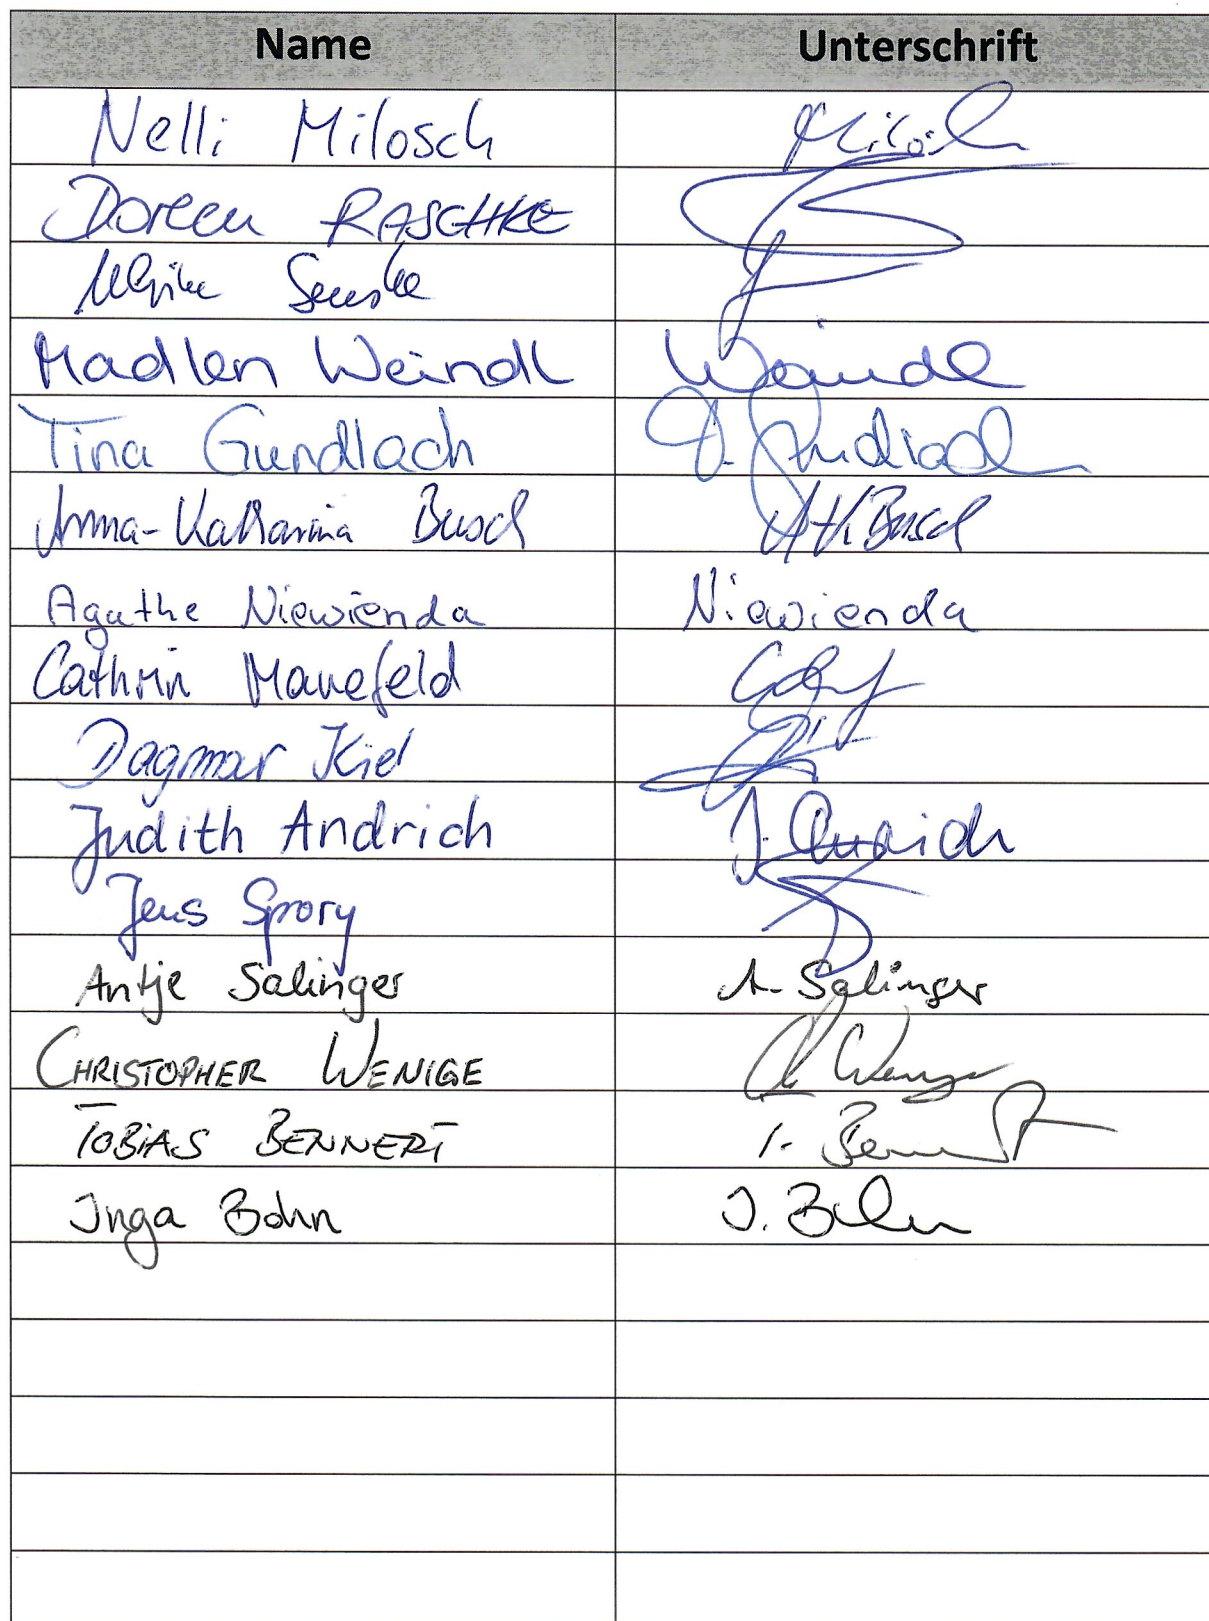 Name Unterschrift
Nelli Milosch Milosch
Doreen RASCHKE
Ulrike Senske
Madlen Weindl Weindl
Tina Gundlach T. Gundlach
Anna-Katharina Busch A-K Busch
Agathe Niewienda Niewienda
Cathrin Manefeld
Dagmar Kiel
Judith Andrich J. Andrich
Jens Spory
Antje Salinger A. Salinger
CHRISTOPHER WENIGE Ch Wenige
TOBIAS BENNERT T. Bennert
Inga Bohn I. Bohn